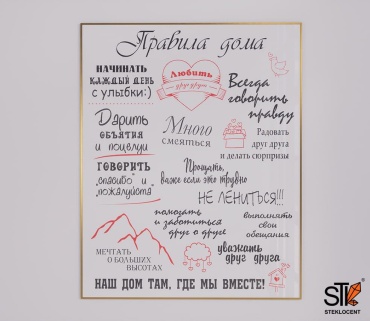 Правила дома
НАЧИНАТЬ
КАЖДЫЙ ДЕНЬ
С УЛЫБКИ:)
Любить
друг друга
Всегда
говорить
правду
Дарить
ОБЪЯТИЯ
и поцелуи
Много
смеяться
Радовать
друг друга
и делать сюрпризы
ГОВОРИТЬ
"спасибо" и
"пожалуйста"
Прощать,
даже если это трудно
НЕ ЛЕНИТЬСЯ!!!
помогать
и заботиться
друг о друге
выполнять
свои
обещания
МЕЧТАТЬ
О БОЛЬШИХ
ВЫСОТАХ
уважать
друг друга
НАШ ДОМ ТАМ, ГДЕ МЫ ВМЕСТЕ!
STK
STEKLOCENT